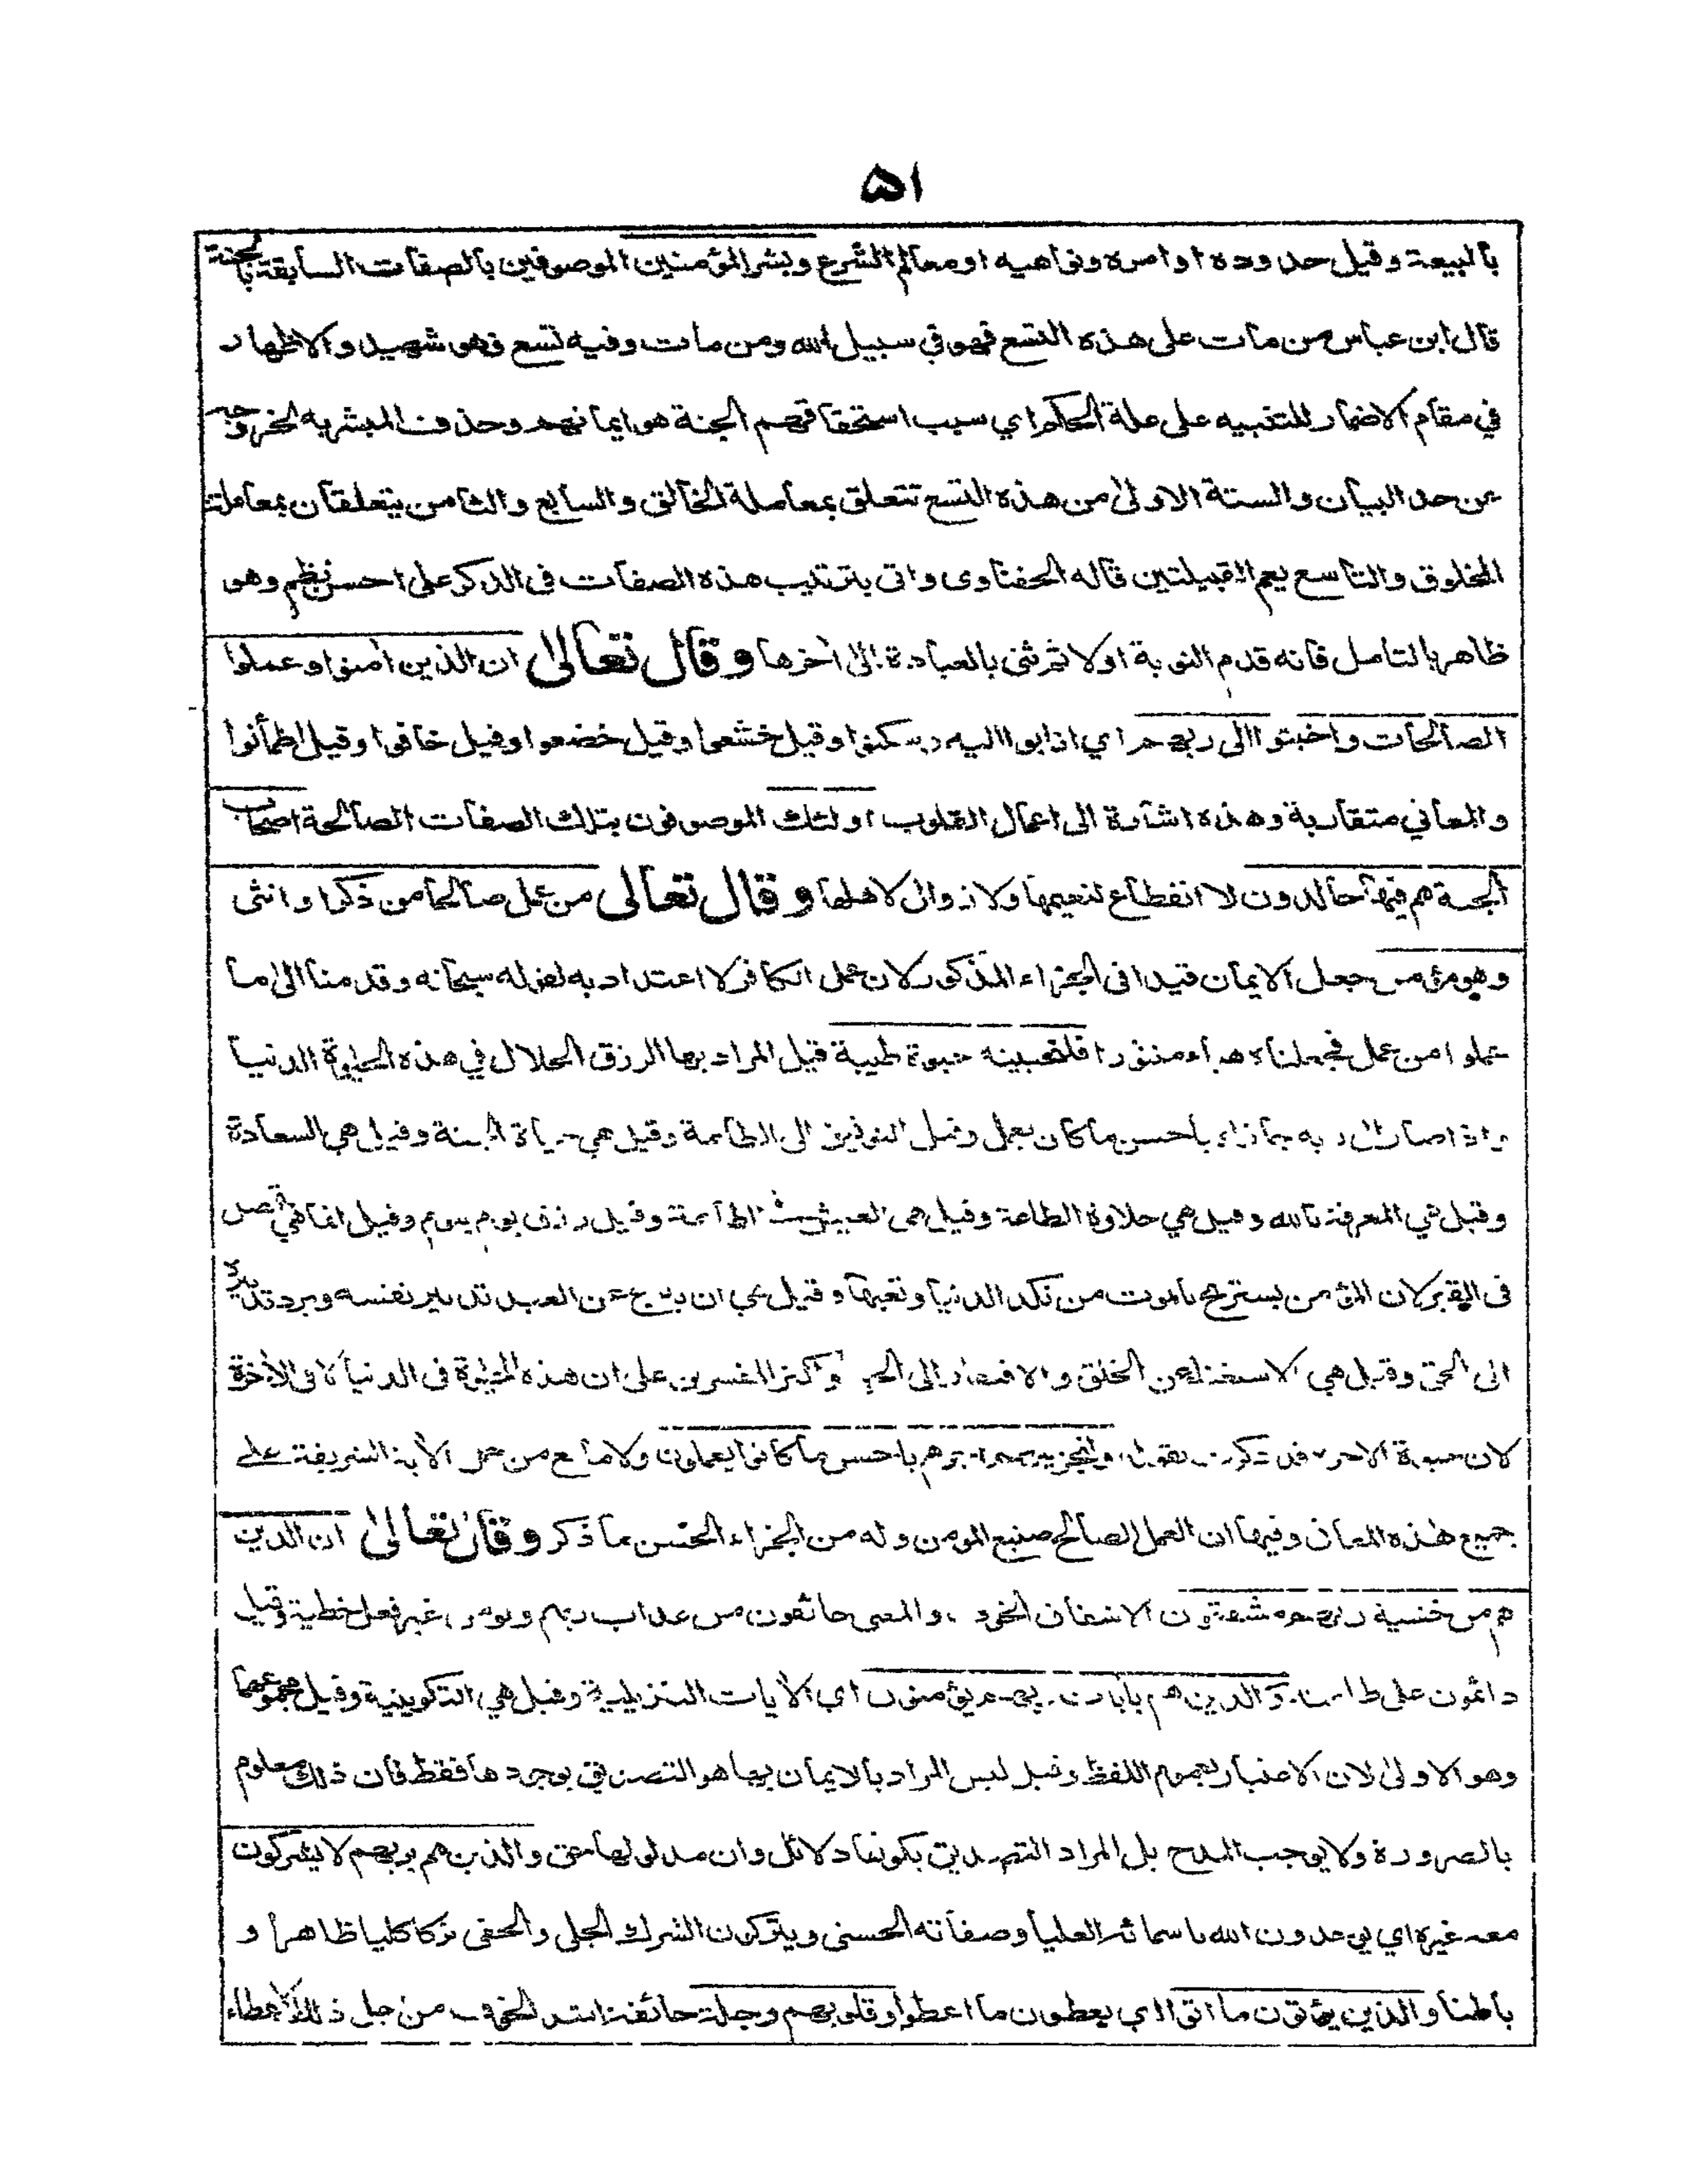 ٥١
بالبيعة وقيل حدوده اوامره ونواهيه او معالم الشرع وبشر المؤمنين الموصوفين بالصفات السابقة بالجنة
قال ابن عباس من مات على هذه التسع فهو في سبيل الله ومن مات وفيه تسع فهو شهيد والاظهار
في مقام الاضمار للتنبيه على علة الحكم اي سبب استحقاقهم الجنة هو ايمانهم وحذف المبشر به لخروجه
عن حد البيان والستة الاولى من هذه التسع تتعلق بمعاملة الخالق والسابع والثامن يتعلقان بمعاملة
المخلوق والتاسع يعم القبيلتين قاله الحفناوى واتى بترتيب هذه الصفات فى الذكر على احسن نظم وهو
ظاهر بالتامل فانه قدم التوبة اولا ثم ثنى بالعبادة الى اخرها وقال تعالى ان الذين امنوا وعملوا
الصالحات واخبتوا الى ربهم اي انابوا اليه وسكنوا وقيل خشعوا وقيل خضعوا وقيل خافوا وقيل اطمأنوا
والمعاني متقاربة وهذه اشارة الى اعمال القلوب اولئك الموصوفون بتلك الصفات الصالحة اصحاب
الجنة هم فيها خالدون لا انقطاع لنعيمها ولا زوال لاهلها وقال تعالى من عمل صالحا من ذكر او انثى
وهو مؤمن جعل الايمان قيدا فى الجزاء المذكور لان عمل الكافر لا اعتداد به لقوله سبحانه وقدمنا الى ما
عملوا من عمل فجعلناه هباء منثورا فلنحيينه حيوة طيبة قيل المراد بها الرزق الحلال في هذه الحيوة الدنيا
واذا صار الى ربه جازاه باحسن ما كان يعمل وقيل التوفيق الى الطاعة وقيل هي حياة الجنة وقيل هي السعادة
وقيل هي المعرفة بالله وقيل هي حلاوة الطاعة وقيل هى العيش فى الطاعة وقيل رزق يوم بيوم وقيل انما هي تحصل
فى القبر لان المؤمن يستريح بالموت من نكد الدنيا وتعبها وقيل هي ان ينزع عن العبد تدبير نفسه ويرد تدبيره
الى الحق وقيل هي الاستغناء عن الخلق والافتقار الى الحق واكثر المفسرين على ان هذه الحيوة فى الدنيا لا فى الأخرة
لان حيوة الاخرة قد ذكرت بقوله ولنجزينهم اجرهم باحسن ما كانوا يعملون ولا مانع من حمل الآية الشريفة على
جميع هذه المعانى وفيها ان العمل الصالح صنيع المومن وله من الجزاء الحسن ما ذكر وقال تعالى ان الذين
هم من خشية ربهم مشفقون الاشفاق الخوف والمعنى خائفون من عذاب ربهم وقيل غير فعل خطية وقيل
دائمون على طاعته والذين هم بايات ربهم يؤمنون اي الأيات التنزيلية وقيل هي التكوينية وقيل مجموعهما
وهو الاولى لان الاعتبار بعموم اللفظ وقيل ليس المراد بالايمان بها هو التصديق بوجودها فقط فان ذلك معلوم
بالضرورة ولا يوجب المدح بل المراد التصديق بكونها دلائل وان مدلولها حق والذين هم بربهم لا يشركون
معه غيره اي يوحدون الله باسمائه العليا وصفاته الحسنى ويتركون الشرك الجلى والخفى تركا كليا ظاهرا و
باطنا والذين يؤتون ما اتوا اي يعطون ما اعطوا وقلوبهم وجلة خائفة اشد الخوف من اجل ذلك الاعطاء